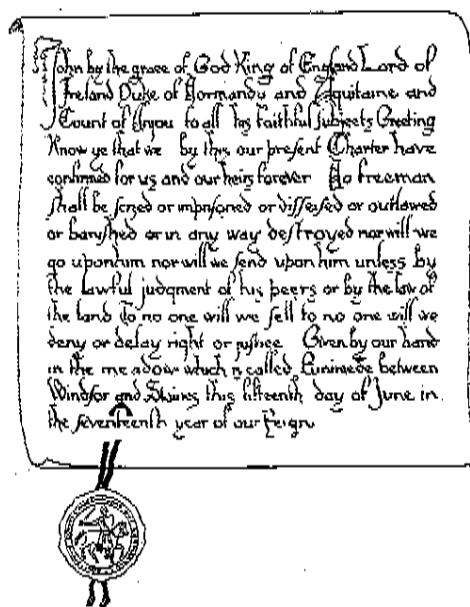 John by the grace of God King of England Lord of
Ireland Duke of Normandy and Aquitaine and
Count of Anjou to all his faithful subjects Greeting
Know ye that we by this our present Charter have
confirmed for us and our heirs forever No freeman
shall be seized or imprisoned or disseised or outlawed
or banished or in any way destroyed nor will we
go upon him nor will we send upon him unless by
the lawful judgment of his peers or by the law of
the land To no one will we sell to no one will we
deny or delay right or justice Given by our hand
in the meadow which is called Runimede between
Windsor and Stains this fifteenth day of June in
the seventeenth year of our Reign